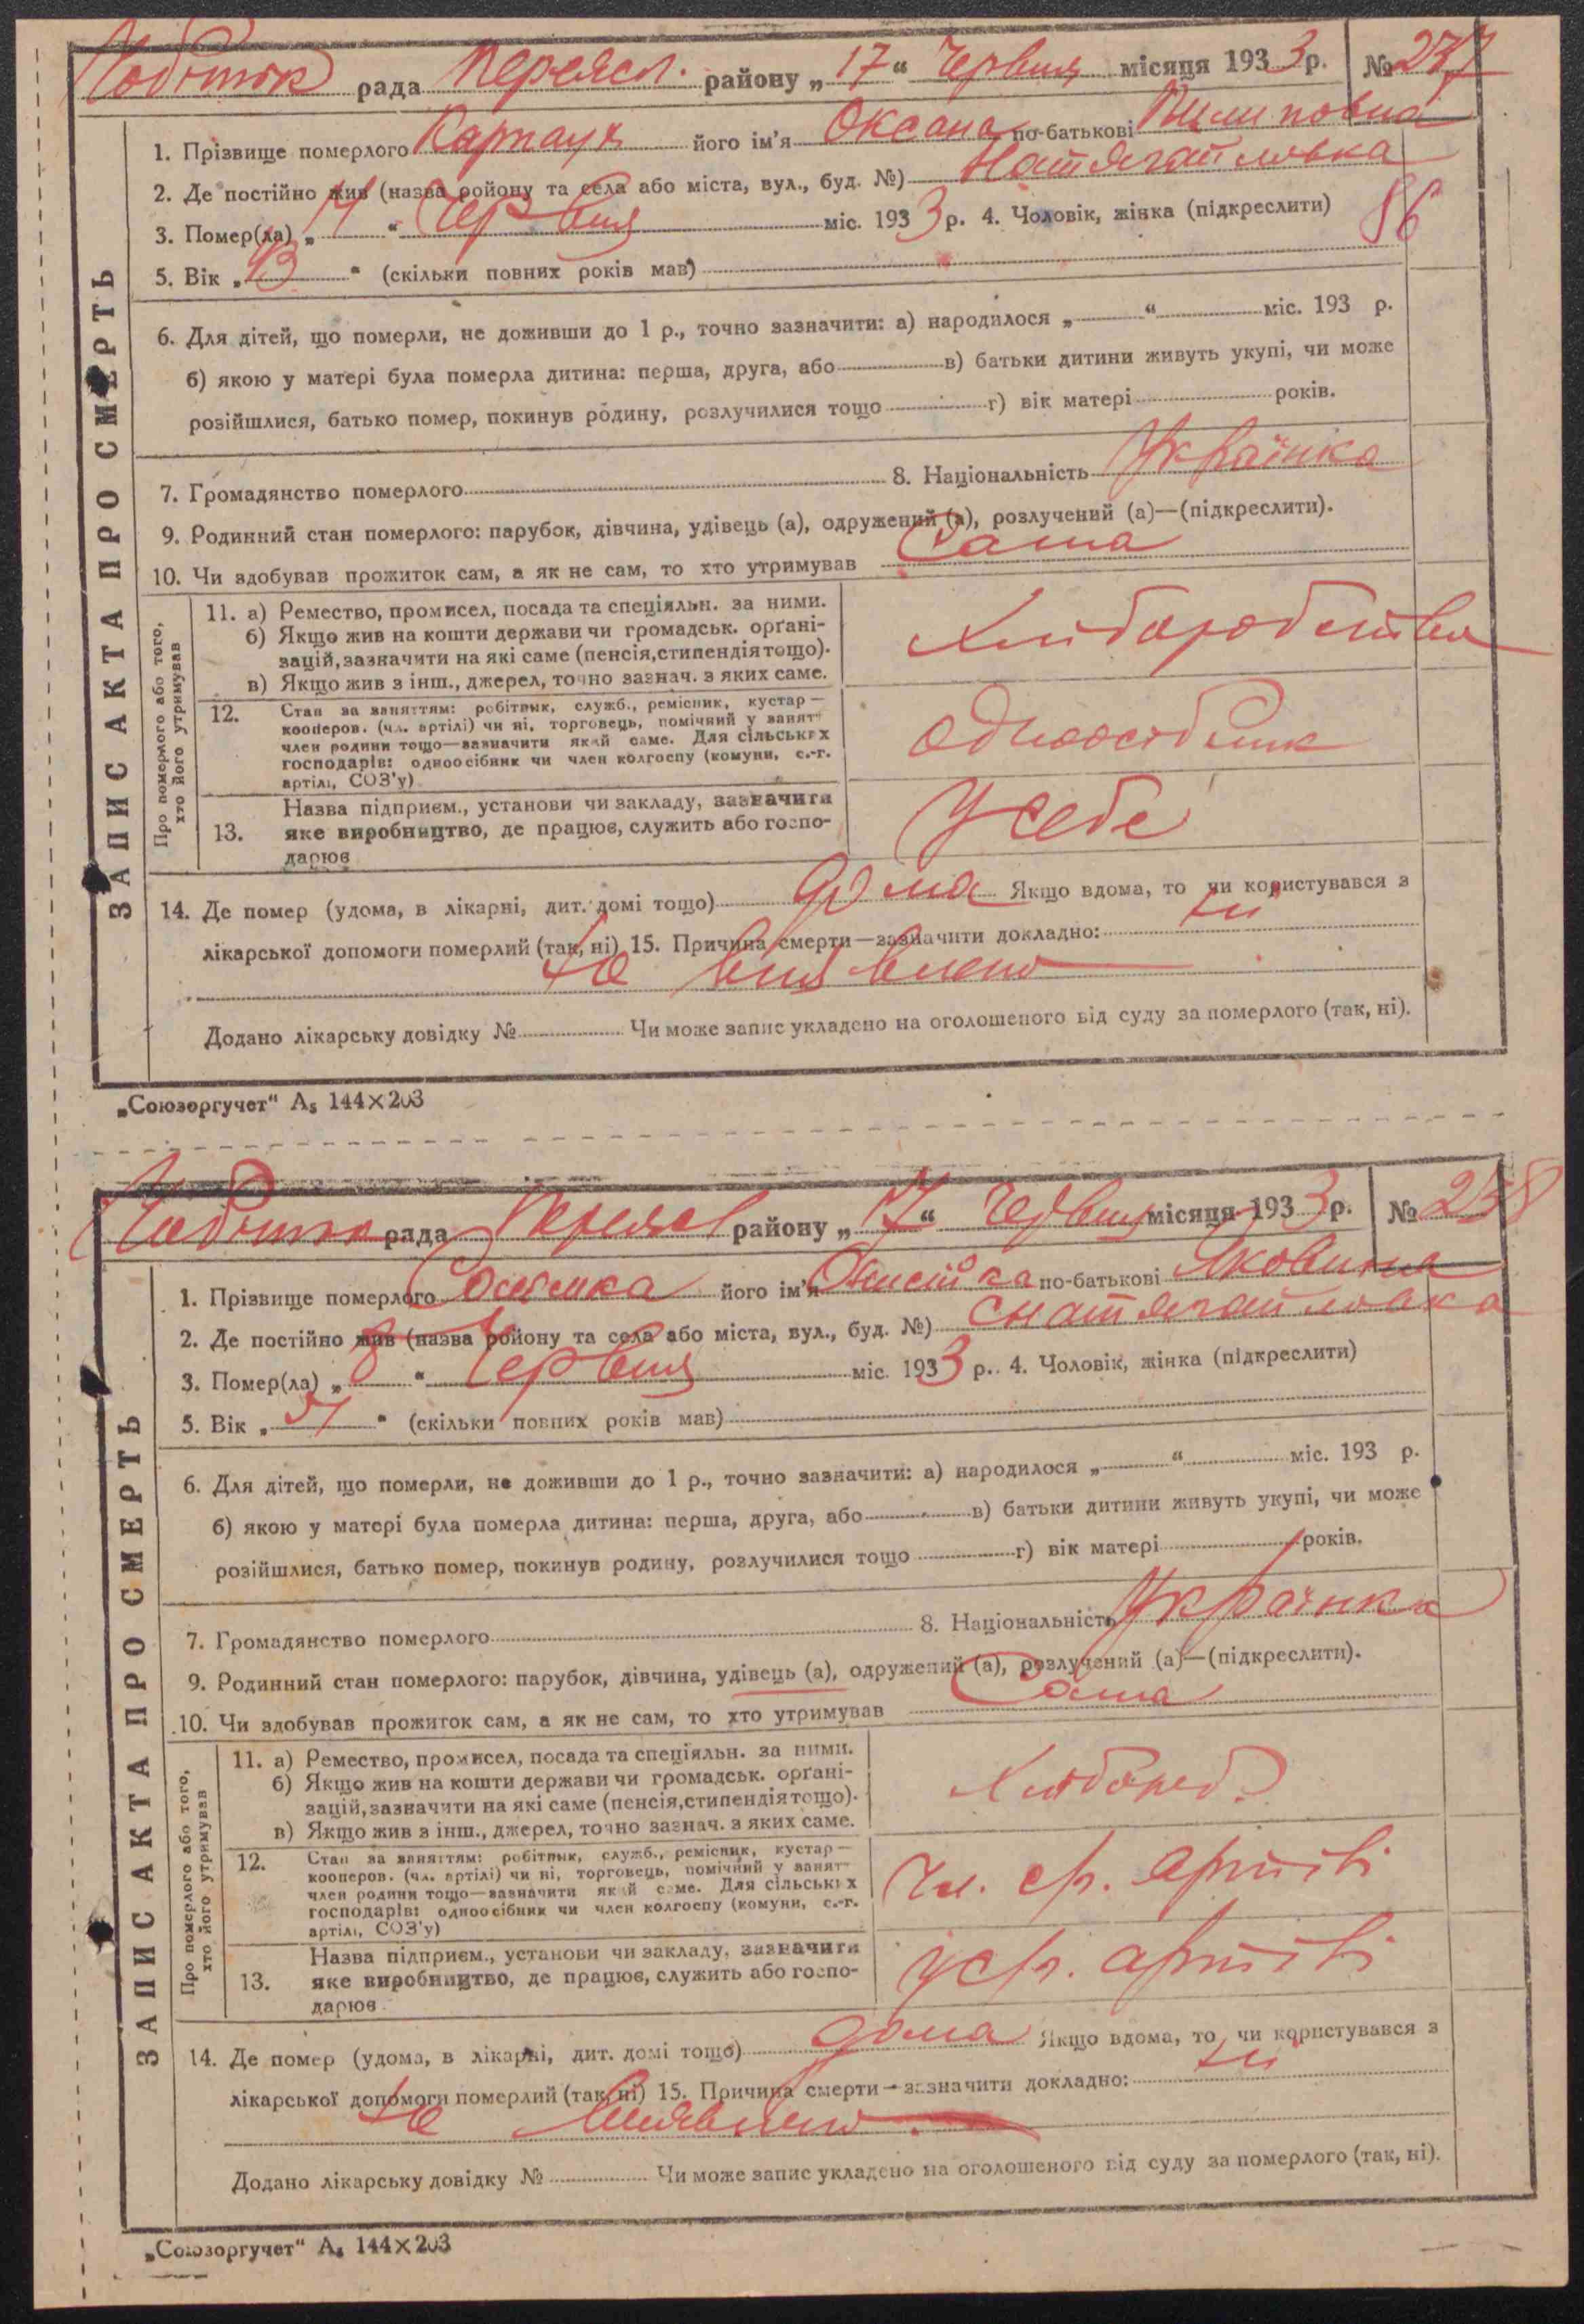 рада Переясл. району „17“ Червня місяця 1933 р. № 237
ЗАПИС АКТА ПРО СМЕРТЬ
1. Прізвище померлого Карпаух його ім'я Оксана по-батькові Пилиповна
2. Де постійно жив (назва ройону та села або міста, вул., буд. №)
3. Помер(ла) „ “ Червня міс. 1933 р. 4. Чоловік, жінка (підкреслити) 86
5. Вік „ “ (скільки повних років мав)
6. Для дітей, що померли, не доживши до 1 р., точно зазначити: а) народилося „ “ міс. 193 р.
б) якою у матері була померла дитина: перша, друга, або в) батьки дитини живуть укупі, чи може
розійшлися, батько помер, покинув родину, розлучилися тощо г) вік матері років.
7. Громадянство померлого 8. Національність Українка
9. Родинний стан померлого: парубок, дівчина, удівець (а), одружений (а), розлучений (а)—(підкреслити).
10. Чи здобував прожиток сам, а як не сам, то хто утримував Сама
Про померлого або того, хто його утримував
11. а) Ремество, промисел, посада та спеціяльн. за ними.
б) Якщо жив на кошти держави чи громадськ. орґані-
зацій, зазначити на які саме (пенсія, стипендія тощо).
в) Якщо жив з інш., джерел, точно зазнач. з яких саме.
Хліборобство
12. Стан за заняттям: робітник, служб., ремісник, кустар —
кооперов. (чл. артілі) чи ні, торговець, помічний у занят-
член родини тощо—зазначити який саме. Для сільських
господарів: одноосібник чи член колгоспу (комуни, с.-г.
артілі, СОЗ'у)
одноосібник
13. Назва підприєм., установи чи закладу, зазначити
яке виробництво, де працює, служить або госпо-
дарює
У себе
14. Де помер (удома, в лікарні, дит. домі тощо) дома Якщо вдома, то чи користувався з
лікарської допомоги померлий (так, ні) ні 15. Причина смерти—зазначити докладно:
не виявлено
Додано лікарську довідку № Чи може запис укладено на оголошеного від суду за померлого (так, ні).
„Союзоргучет“ А₅ 144×203
рада Переясл району „17“ Червня місяця 1933 р. № 238
ЗАПИС АКТА ПРО СМЕРТЬ
1. Прізвище померлого його ім'я по-батькові Яковина
2. Де постійно жив (назва ройону та села або міста, вул., буд. №)
3. Помер(ла) „8“ Червня міс. 1933 р. 4. Чоловік, жінка (підкреслити)
5. Вік „ “ (скільки повних років мав)
6. Для дітей, що померли, не доживши до 1 р., точно зазначити: а) народилося „ “ міс. 193 р.
б) якою у матері була померла дитина: перша, друга, або в) батьки дитини живуть укупі, чи може
розійшлися, батько помер, покинув родину, розлучилися тощо г) вік матері років.
7. Громадянство померлого 8. Національність Українка
9. Родинний стан померлого: парубок, дівчина, удівець (а), одружений (а), розлучений (а)—(підкреслити).
10. Чи здобував прожиток сам, а як не сам, то хто утримував Сама
Про померлого або того, хто його утримував
11. а) Ремество, промисел, посада та спеціяльн. за ними.
б) Якщо жив на кошти держави чи громадськ. орґані-
зацій, зазначити на які саме (пенсія, стипендія тощо).
в) Якщо жив з інш., джерел, точно зазнач. з яких саме.
Хлібороб.
12. Стан за заняттям: робітник, служб., ремісник, кустар —
кооперов. (чл. артілі) чи ні, торговець, помічний у занят-
член родини тощо—зазначити який саме. Для сільських
господарів: одноосібник чи член колгоспу (комуни, с.-г.
артілі, СОЗ'у)
Чл. с/г. артілі
13. Назва підприєм., установи чи закладу, зазначити
яке виробництво, де працює, служить або госпо-
дарює
у с/г. артілі
14. Де помер (удома, в лікарні, дит. домі тощо) дома Якщо вдома, то чи користувався з
лікарської допомоги померлий (так, ні) ні 15. Причина смерти—зазначити докладно:
не виявлено.
Додано лікарську довідку № Чи може запис укладено на оголошеного від суду за померлого (так, ні).
„Союзоргучет“ А₅ 144×203